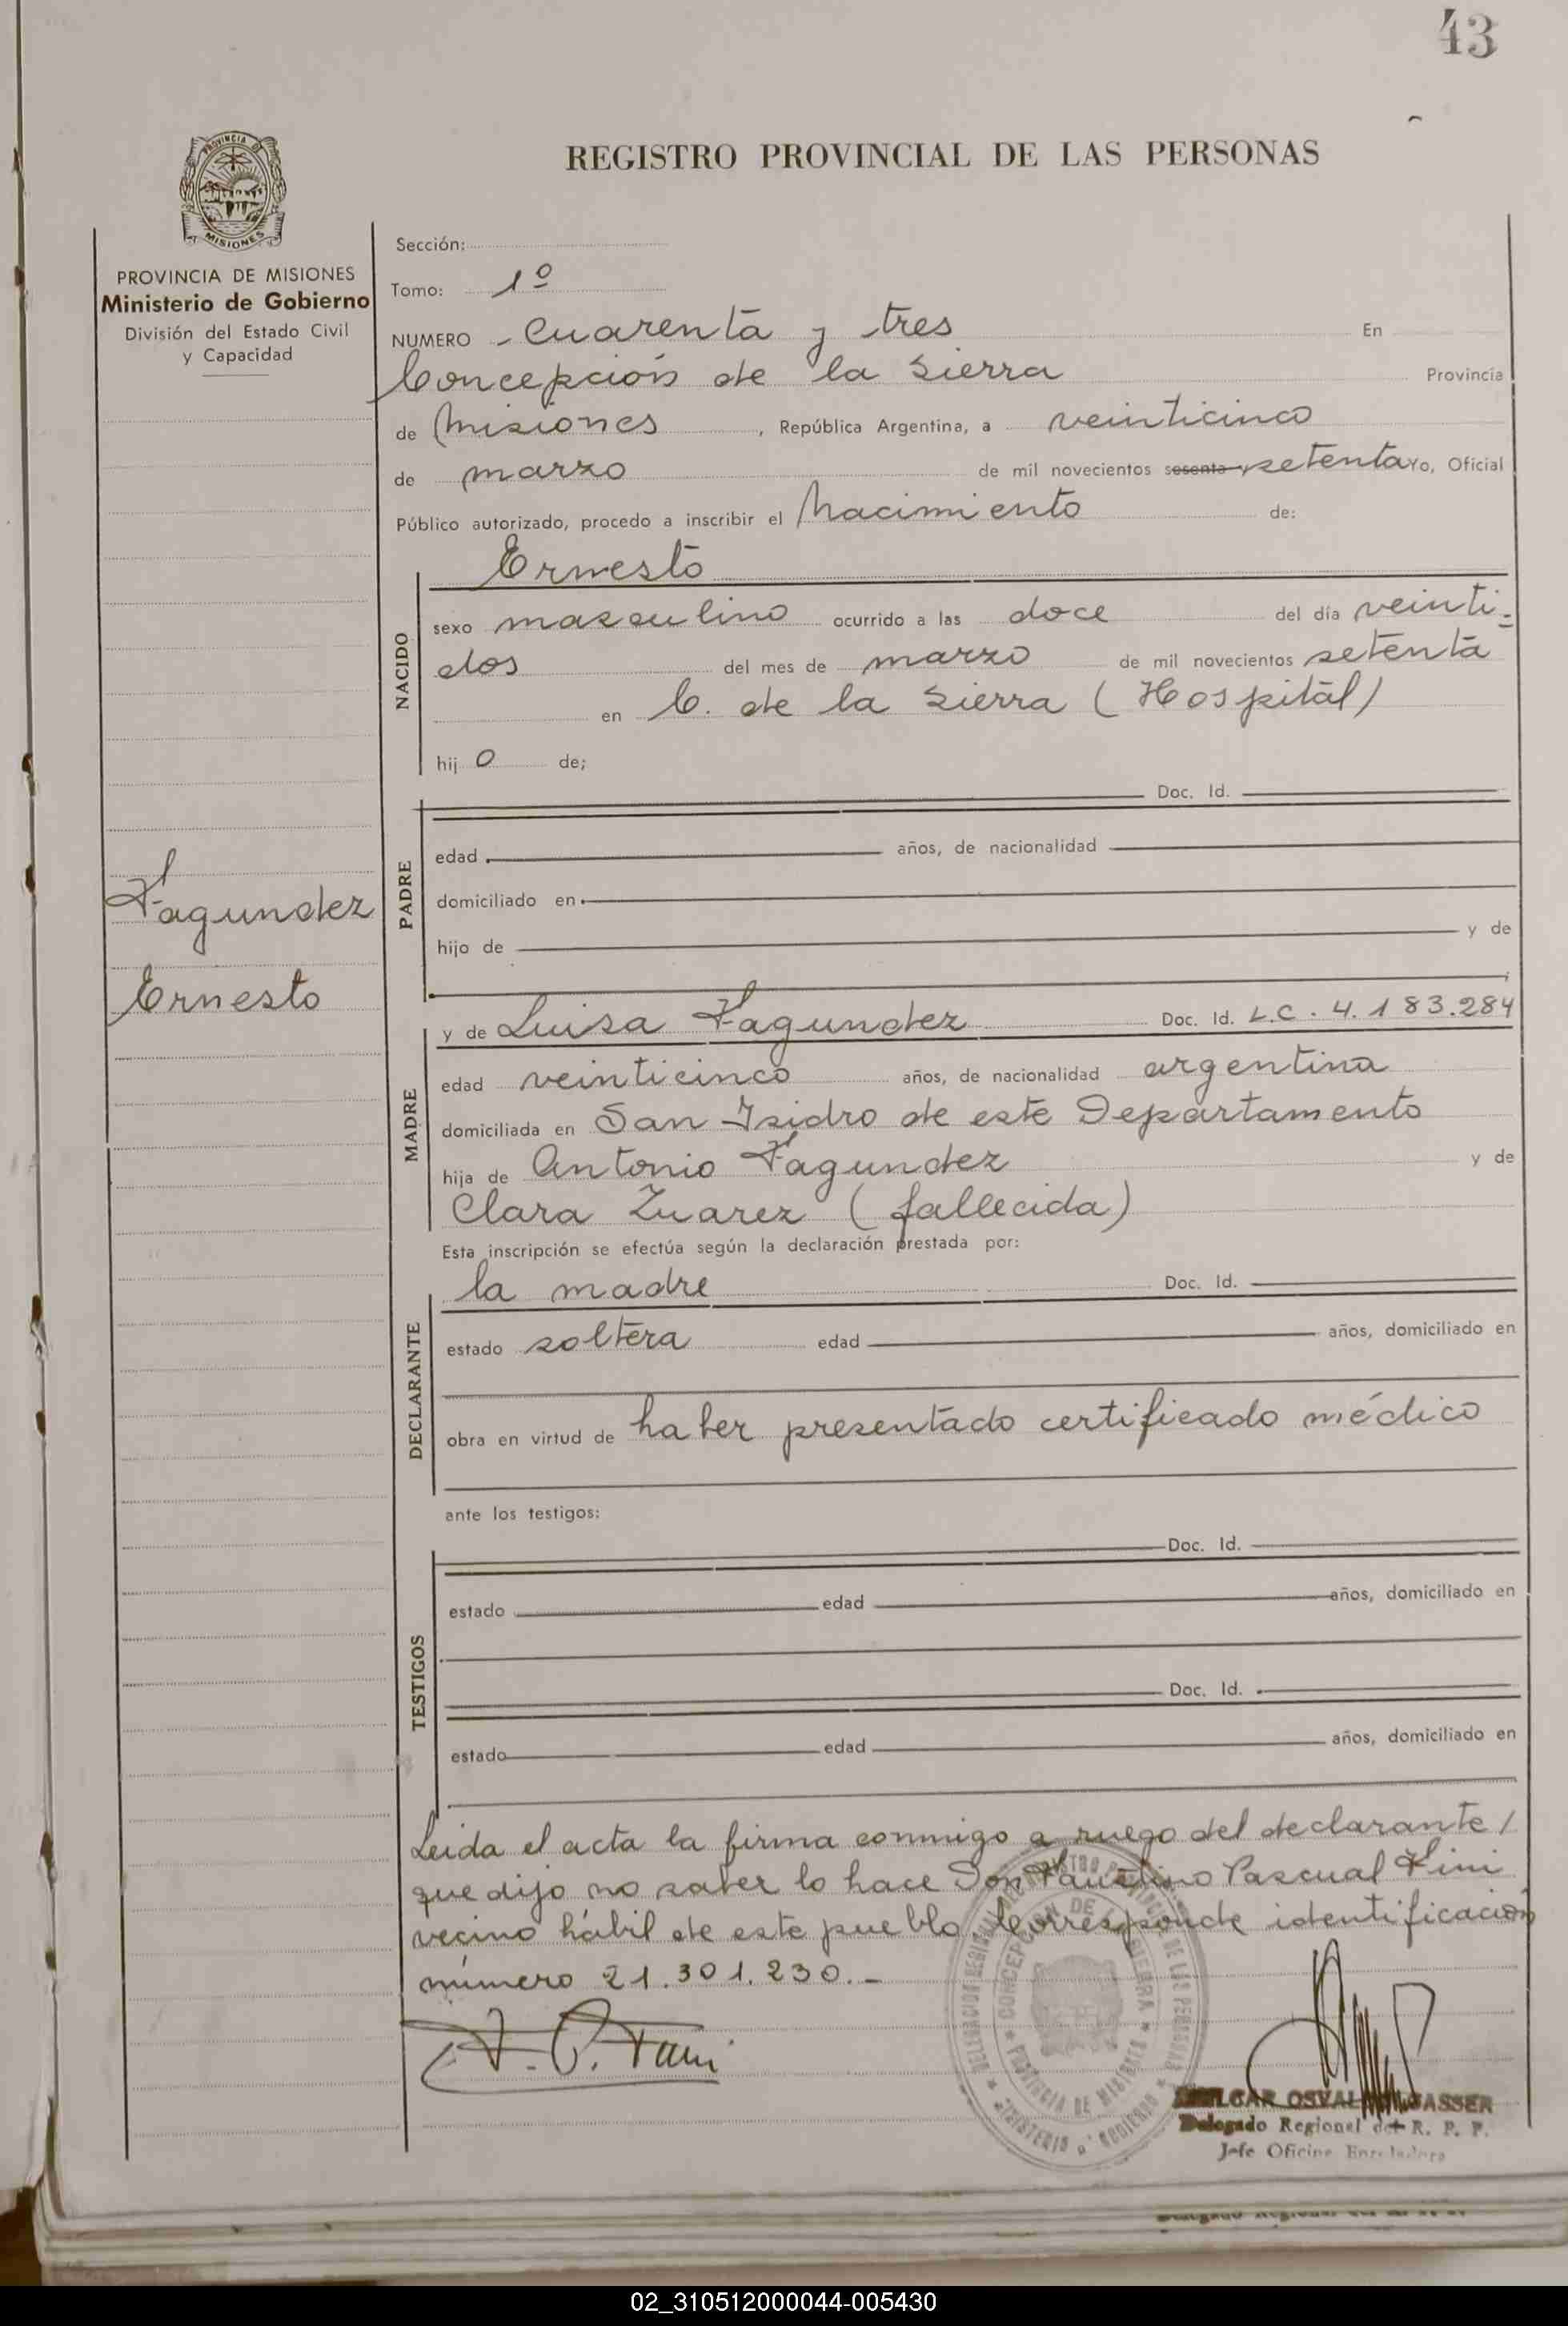 43
REGISTRO PROVINCIAL DE LAS PERSONAS
PROVINCIA DE MISIONES
Ministerio de Gobierno
División del Estado Civil
y Capacidad
Fagundez
Ernesto
Sección:
Tomo: 1º
NUMERO - Cuarenta y tres En
Concepción de la Sierra Provincia
de Misiones, República Argentina, a veinticinco
de marzo de mil novecientos sesenta y setenta Yo, Oficial
Público autorizado, procedo a inscribir el Nacimiento de:
Ernesto
NACIDO
sexo masculino ocurrido a las doce del día veinti=
dos del mes de marzo de mil novecientos setenta
en C. de la Sierra (Hospital)
hijo de;
PADRE
Doc. Id.
edad años, de nacionalidad
domiciliado en
hijo de y de
MADRE
y de Luisa Fagundez Doc. Id. L.C. 4.183.284
edad veinticinco años, de nacionalidad argentina
domiciliada en San Isidro de este Departamento
hija de Antonio Fagundez y de
Clara Zuarez (fallecida)
Esta inscripción se efectúa según la declaración prestada por:
DECLARANTE
la madre Doc. Id.
estado soltera edad años, domiciliado en
obra en virtud de haber presentado certificado médico
ante los testigos:
TESTIGOS
Doc. Id.
estado edad años, domiciliado en
Doc. Id.
estado edad años, domiciliado en
Leida el acta la firma conmigo a ruego del declarante /
que dijo no saber lo hace Don Faustino Pascual Fini
vecino hábil de este pueblo. Corresponde identificación
número 21.301.230.-
CONCEPCION DE LA SIERRA
PROVINCIA DE MISIONES
Delegado Regional del R. P. P.
Jefe Oficina
02_310512000044-005430